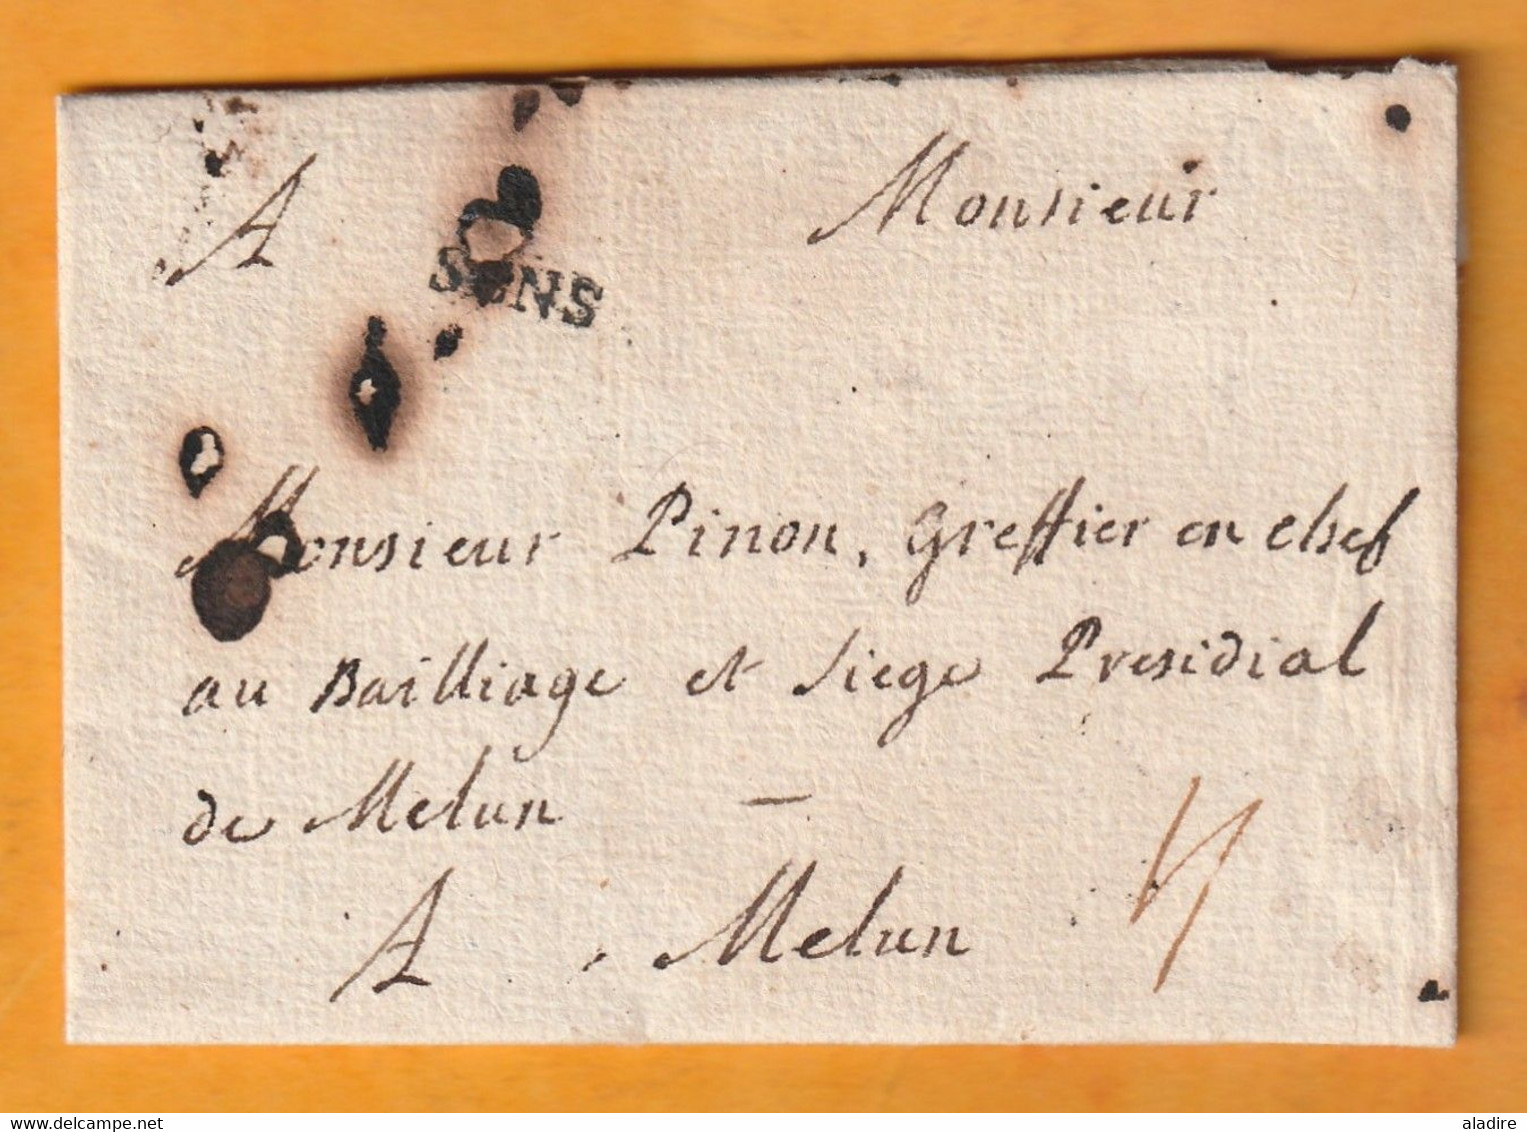 A Monsieur
SENS
Monsieur Pinon, greffier en chef
au Bailliage et siege Presidial
de Melun —
A Melun 4
delcampe.net
aladire